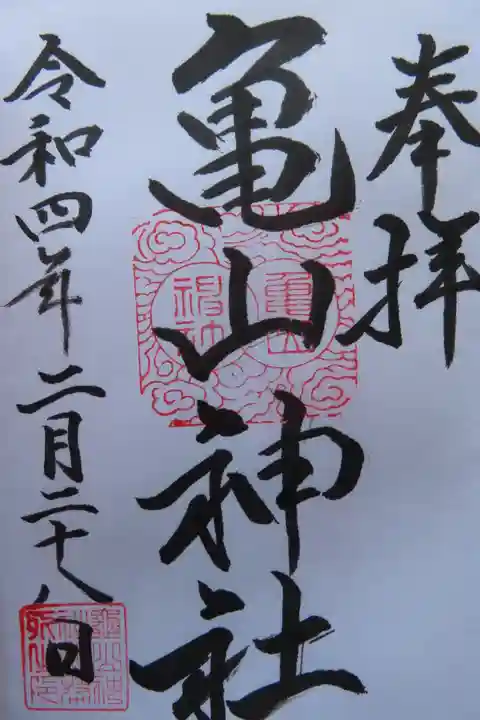 奉拝
亀山神社
令和四年二月二十八日